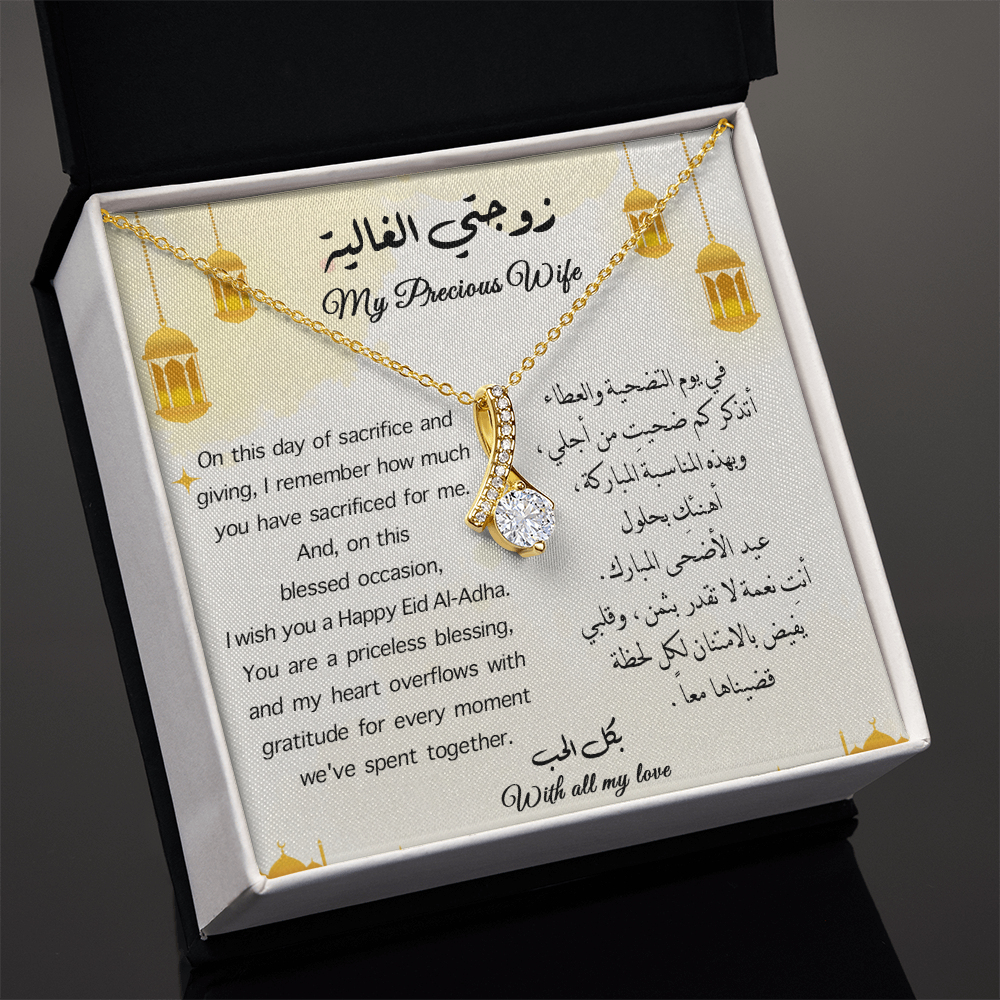 زوجتي الغالية
My Precious Wife
On this day of sacrifice and
giving, I remember how much
you have sacrificed for me.
And, on this
blessed occasion,
I wish you a Happy Eid Al-Adha.
You are a priceless blessing,
and my heart overflows with
gratitude for every moment
we've spent together.
في يوم التضحية والعطاء
أتذكر كم ضحيتِ من أجلي،
وبهذه المناسبة المباركة،
أهنئكِ بحلول
عيد الأضحى المبارك.
أنتِ نعمة لا تقدر بثمن، وقلبي
يفيض بالامتنان لكل لحظة
قضيناها معاً.
بكل الحب
With all my love